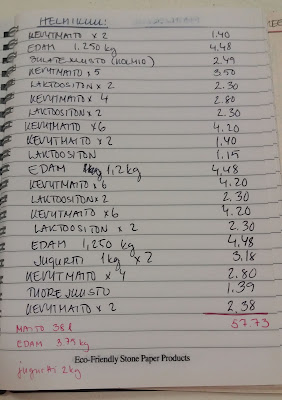 HELMIKUU:
KEVYTMAITO x 2 1.40
EDAM 1.250 kg 4.48
SULATEJUUSTO (KOLMIO) 2.49
KEVYTMAITO x 5 3.50
LAKTOOSITON x 2 2.30
KEVYTMAITO x 4 2.80
LAKTOOSITON x 2 2.30
KEVYTMAITO x 6 4.20
KEVYTMAITO x 2 1.40
LAKTOOSITON 1.15
EDAM 1,2 kg 4.48
KEVYTMAITO x 6 4.20
LAKTOOSITON x 2 2.30
KEVYTMAITO x 6 4.20
LAKTOOSITON x 2 2.30
EDAM 1,250 kg 4,48
JUGURTTI 1kg x 2 3.18
KEVYTMAITO x 4 2.80
TUOREJUUSTO 1.39
KEVYTMAITO x 2 2,38
57.73
MAITO 38 l
EDAM 3.75 kg
jugurtti 2kg
Eco-Friendly Stone Paper Products